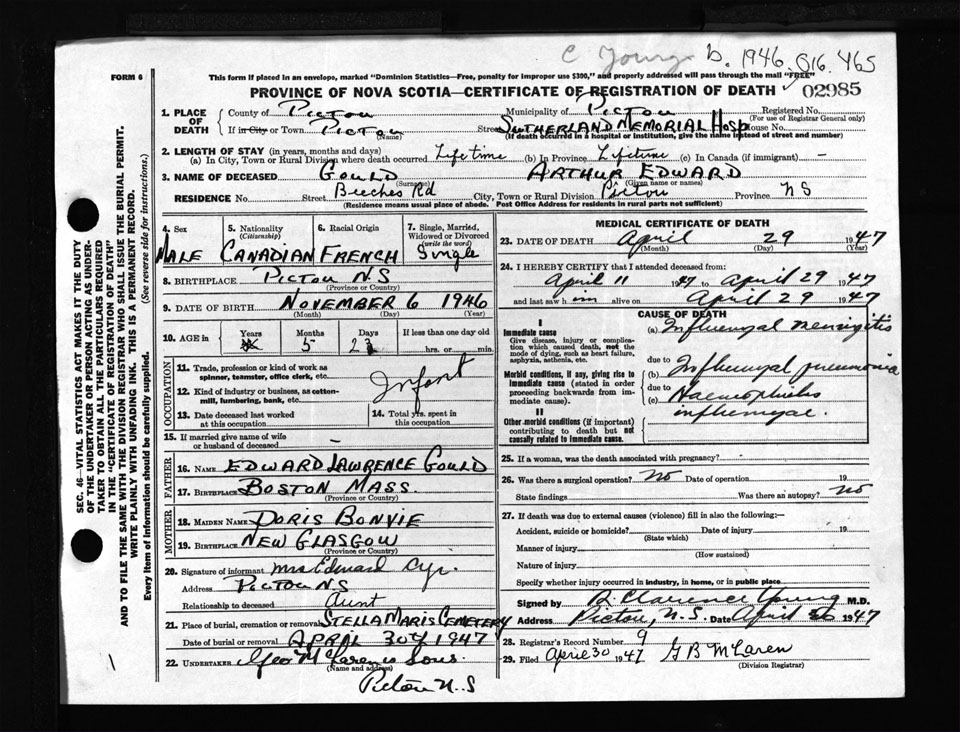 C Young b. 1946. 616. 465
FORM 6
This form if placed in an envelope, marked "Dominion Statistics—Free, penalty for improper use $300," and properly addressed will pass through the mail "FREE"
PROVINCE OF NOVA SCOTIA—CERTIFICATE OF REGISTRATION OF DEATH 02985
1. PLACE OF DEATH County of Pictou Municipality of Pictou Registered No.
(For use of Registrar General only)
If in City or Town Pictou Street SUTHERLAND MEMORIAL HOSP House No.
(Name) (If death occurred in a hospital or institution, give the name instead of street and number)
2. LENGTH OF STAY (in years, months and days)
(a) In City, Town or Rural Division where death occurred Lifetime (b) In Province Lifetime (c) In Canada (if immigrant) –
3. NAME OF DECEASED GOULD ARTHUR EDWARD
(Surname) (Given name or names)
RESIDENCE No. Street Beeches Rd City, Town or Rural Division Pictou Province NS
(Residence means usual place of abode. Post Office Address for residents in rural parts not sufficient)
4. Sex 5. Nationality (Citizenship) 6. Racial Origin 7. Single, Married, Widowed or Divorced (write the word)
MALE CANADIAN FRENCH Single
8. BIRTHPLACE PICTOU N.S
(Province or Country)
9. DATE OF BIRTH NOVEMBER 6 1946
(Month) (Day) (Year)
10. AGE in Years Months Days If less than one day old
5 23 hrs. or min.
OCCUPATION
11. Trade, profession or kind of work as spinner, teamster, office clerk, etc.
12. Kind of industry or business, as cotton-mill, lumbering, bank, etc.
Infant
13. Date deceased last worked at this occupation 14. Total yrs. spent in this occupation
15. If married give name of wife or husband of deceased –
FATHER
16. NAME EDWARD LAWRENCE GOULD
17. BIRTHPLACE BOSTON MASS.
(Province or Country)
MOTHER
18. MAIDEN NAME DORIS BONVIE
19. BIRTHPLACE NEW GLASGOW
(Province or Country)
20. Signature of informant Mrs Edward Cyr.
Address PICTOU N.S
Relationship to deceased Aunt
21. Place of burial, cremation or removal STELLA MARIS CEMETERY
Date of burial or removal APRIL 30th 1947
22. UNDERTAKER Geo McLaren & Sons
(Name and address)
Pictou N.S
MEDICAL CERTIFICATE OF DEATH
23. DATE OF DEATH April 29 1947
(Month) (Day) (Year)
24. I HEREBY CERTIFY that I attended deceased from:
April 11 1947 to April 29 1947
and last saw him alive on April 29 1947
CAUSE OF DEATH
I
Immediate cause
Give disease, injury or complication which caused death, not the mode of dying, such as heart failure, asphyxia, asthenia, etc.
(a) Influenzal meningitis
due to
Morbid conditions, if any, giving rise to immediate cause (stated in order proceeding backwards from immediate cause).
(b) Influenzal pneumonia
due to
(c) Haemophilis influenzae.
II
Other morbid conditions (if important) contributing to death but not causally related to immediate cause.
25. If a woman, was the death associated with pregnancy?
26. Was there a surgical operation? No Date of operation 19
State findings Was there an autopsy? No
27. If death was due to external causes (violence) fill in also the following:—
Accident, suicide or homicide? Date of injury 19
(State which)
Manner of injury
(How sustained)
Nature of injury
Specify whether injury occurred in industry, in home, or in public place
Signed by B. Clarence Young M.D.
Address Pictou, N.S. Date April 26 1947
28. Registrar's Record Number 9
29. Filed April 30 1947 G B McLaren
(Division Registrar)
SEC. 46—VITAL STATISTICS ACT MAKES IT THE DUTY
OF THE UNDERTAKER OR PERSON ACTING AS UNDER-
TAKER TO OBTAIN ALL THE PARTICULARS REQUIRED
IN THE "CERTIFICATE OF REGISTRATION OF DEATH"
AND TO FILE THE SAME WITH THE DIVISION REGISTRAR WHO SHALL ISSUE THE BURIAL PERMIT.
WRITE PLAINLY WITH UNFADING INK. THIS IS A PERMANENT RECORD.
Every item of information should be carefully supplied. (See reverse side for instructions.)